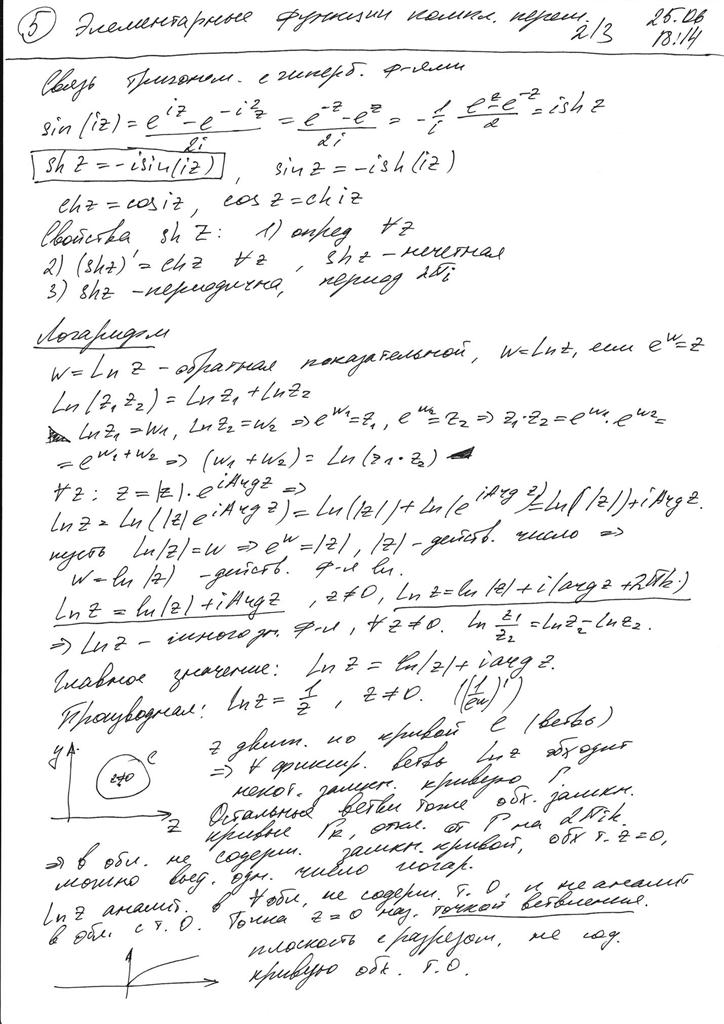 5 Элементарные функции компл. перем. 2/3 25.06 18:14
Связь тригоном. с гиперб. ф-ями
sin(iz) = (e^{iz} - e^{-i²z})/2i = (e^{-z} - e^{z})/2i = -1/i (e^z - e^{-z})/2 = i sh z
sh z = -i sin(iz), sin z = -i sh(iz)
ch z = cos iz, cos z = ch iz
Свойства sh z: 1) опред ∀z
2) (sh z)' = ch z ∀z, sh z - нечетная
3) sh z - периодична, период 2πi
Логарифм
w = Ln z - обратная показательной, w = Ln z, если e^w = z
Ln(z₁ z₂) = Ln z₁ + Ln z₂
Ln z₁ = w₁, Ln z₂ = w₂ ⇒ e^{w₁} = z₁, e^{w₂} = z₂ ⇒ z₁·z₂ = e^{w₁}·e^{w₂} =
= e^{w₁+w₂} ⇒ (w₁+w₂) = Ln(z₁·z₂)
∀z: z = |z|·e^{i Arg z} ⇒
Ln z = Ln(|z| e^{i Arg z}) = Ln(|z|) + Ln(e^{i Arg z}) = Ln(|z|) + i Arg z.
пусть Ln|z| = w ⇒ e^w = |z|, |z| - действ. число ⇒
w = ln|z| - действ. ф-я ln.
Ln z = ln|z| + i Arg z, z≠0, Ln z = ln|z| + i(arg z + 2πk)
⇒ Ln z - многозн. ф-я, ∀z≠0. Ln z₁/z₂ = Ln z₁ - Ln z₂.
Главное значение: ln z = ln|z| + i arg z.
Производная: ln z = 1/z, z≠0.
y C z≠0 z
z движ. по кривой C (ветвь)
⇒ ∀ фиксир. ветвь Ln z обходит
некот. замкн. кривую Γ
Остальные ветви тоже обх. замкн.
кривые Γk, откл. от Γ на 2πik.
⇒ в обл. не содерж. замкн. кривой, обх т. z=0,
можно выд. одн. число логар.
Ln z аналит. в ∀ обл, не содерж. т. 0, и не аналит
в обл. с т. 0. Точка z=0 наз. точкой ветвления.
плоскость с разрезом, не сод.
кривую обх. т. 0.